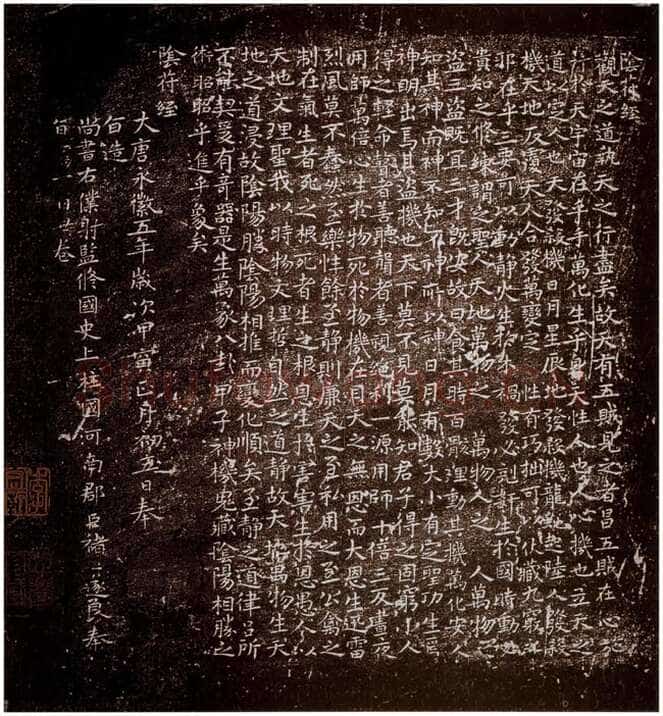 陰符經
觀天之道執天之行盡矣故天有五賊見之者昌五賊在心施
行於天宇宙在乎手萬化生乎身天性人也人心機也立天之
道以定人也天發殺機日月星辰地發殺機龍蛇起陸人發殺
機天地反覆天人合發萬變定性有巧拙可以伏藏九竅之
邪在乎三要可以動靜火生於木禍發必剋奸生於國時動必
潰知之修練謂之聖人天地萬物之萬物人之人萬物之
盜三盜既宜三才既安故曰食其時百骸理動其機萬化安人
知其神而神不知不神所以神日月有數大小有定聖功生焉
神明出焉其盜機也天下莫不見莫能知君子得之固窮小人
得之輕命瞽者善聽聾者善視絕利一源用師十倍三反晝夜
用師萬倍心生於物死於物機在目天之無恩而大恩生迅雷
烈風莫不蠢然至樂性餘至靜則廉天之至私用之至公禽之
制在氣生者死之根死者生之根恩生於害害生於恩愚人以
天地文理聖我以時物文理哲自然之道靜故天地萬物生天
地之道浸故陰陽勝陰陽相推而變化順矣至靜之道律呂所
不能契爰有奇器是生萬象八卦甲子神機鬼藏陰陽相勝之
術昭昭乎進乎象矣
陰符經
大唐永徽五年歲次甲寅正月初五日奉
旨造
尚書右僕射監修國史上柱國河南郡臣褚遂良奉
旨一廿卷